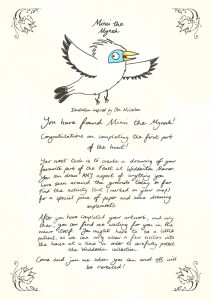 Mimi the
Mynah
Illustration inspired by
You have found Mimi the Mynah!
Congratulations on completing the first part
of the hunt!
Your next task is to create a drawing of your
favourite part of the Feast at Waddesdon Manor.
You can draw ANY aspect of anything you
have seen around the grounds today so far
find the activity tent (marked on your map)
for a special piece of paper and some drawing
implements.
After you have completed your artwork, and any
others, you can find me waiting for you in the
manor itself. You might have to be a little
patient, as we can only allow a few visitors into
the house at a time in order to carefully protect
the Waddesdon collection.
Come and join me when you can and all will
be revealed!